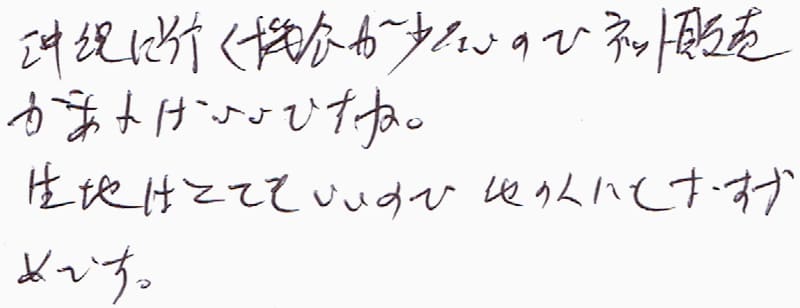 沖縄に行く機会が少ないのでネット販売
があればいいですね。
生地はとてもいいので他の人にもおすす
めです。